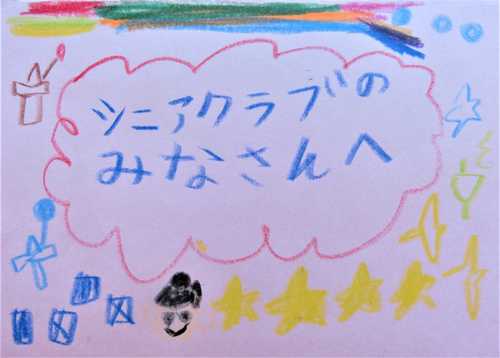 シニアクラブの
みなさんへ